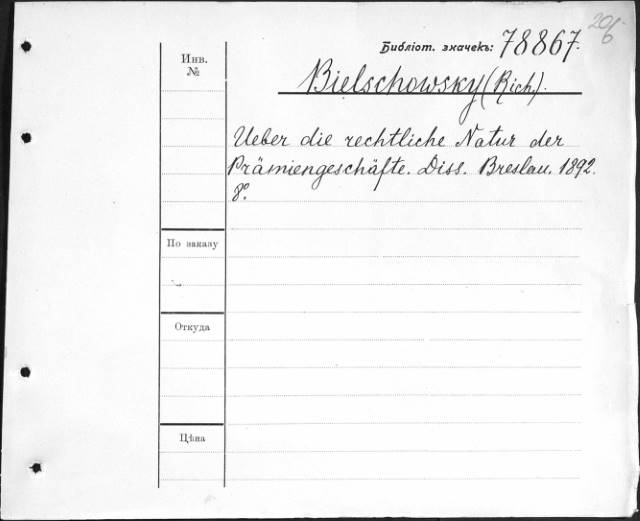 206
Библіот. значекъ: 78867.
Инв.
№
Bielschowsky (Rich.).
Ueber die rechtliche Natur der
Prämiengeschäfte. Diss. Breslau. 1892.
8°.
По заказу
Откуда
Цѣна